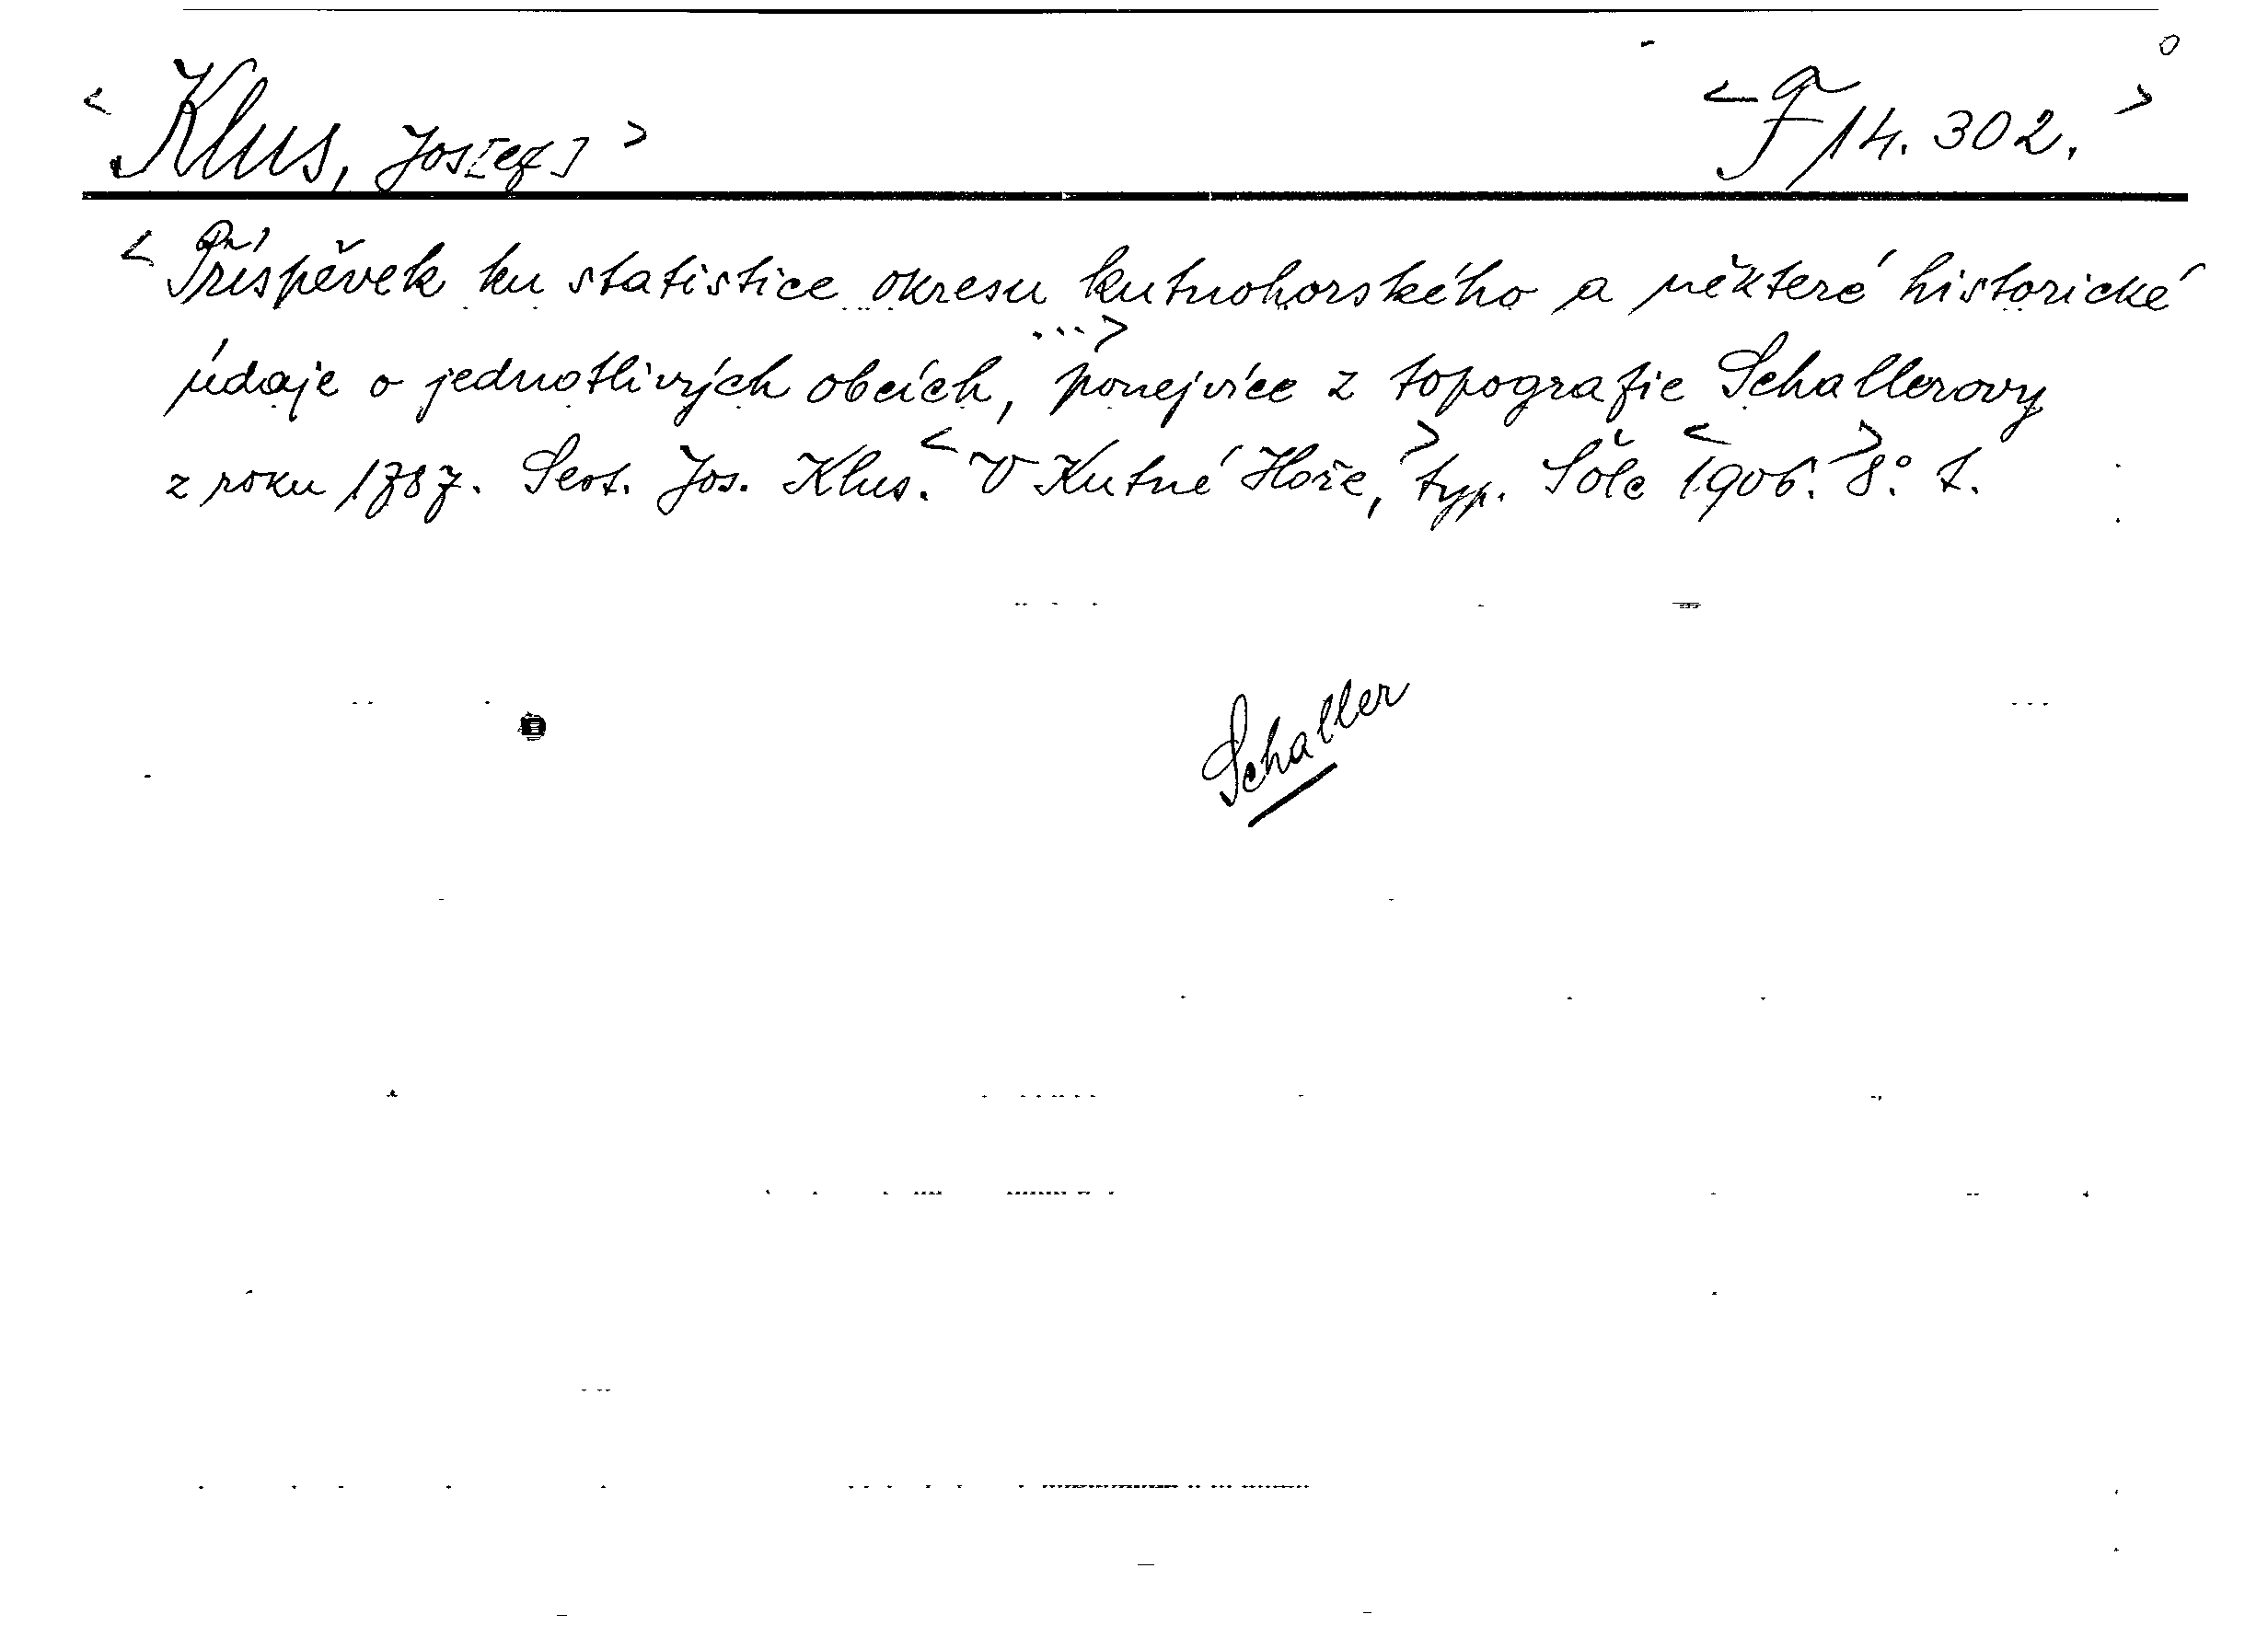 < Klus, Jos[ef] > < F 14.302. >
< Příspěvek ku statistice okresu kutnohorského a některé historické
údaje o jednotlivých obcích, ...> ponejvíce z topografie Schallerovy
z roku 1787. Sest. Jos. Klus. < V Kutné Hoře, > typ. Šolc < 1906. > 8° 1.
Schaller